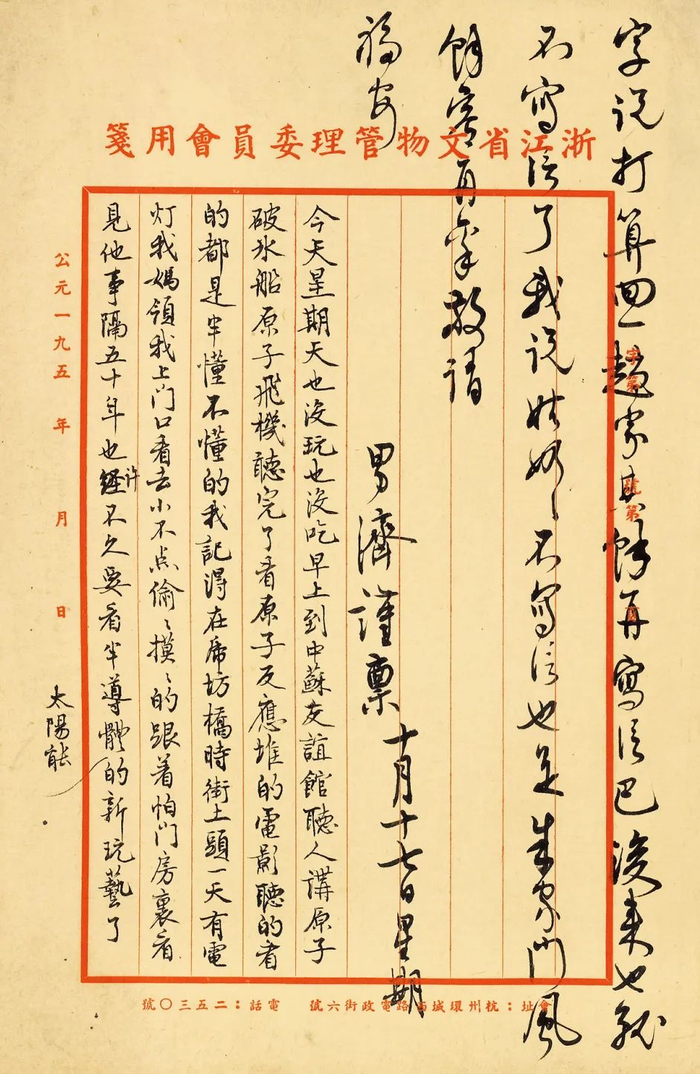 浙江省文物管理委員會用箋
字说打算回一趟家其餘再寫信巴後来也就
不寫信了我说姑奶〻不寫信也是朱家门風
餘容再稟敬请
福安
男濟謹稟十月十七日星期
今天星期天也没玩也没吃早上到中蘇友誼館聽人講原子
破氷船原子飛機聽完了看原子反應堆的電影聽的看
的都是半懂不懂的我記得在虎坊橋時街上頭一天有電
灯我媽領我上门口看去小不点偷〻摸〻的跟着怕门房裏看
見他事隔五十年也許不久要看半導體的新玩藝了
太陽能
公元一九五 年 月 日
字第 號第 頁
會址：杭州環城西路電政街六號 電話：二五三〇號